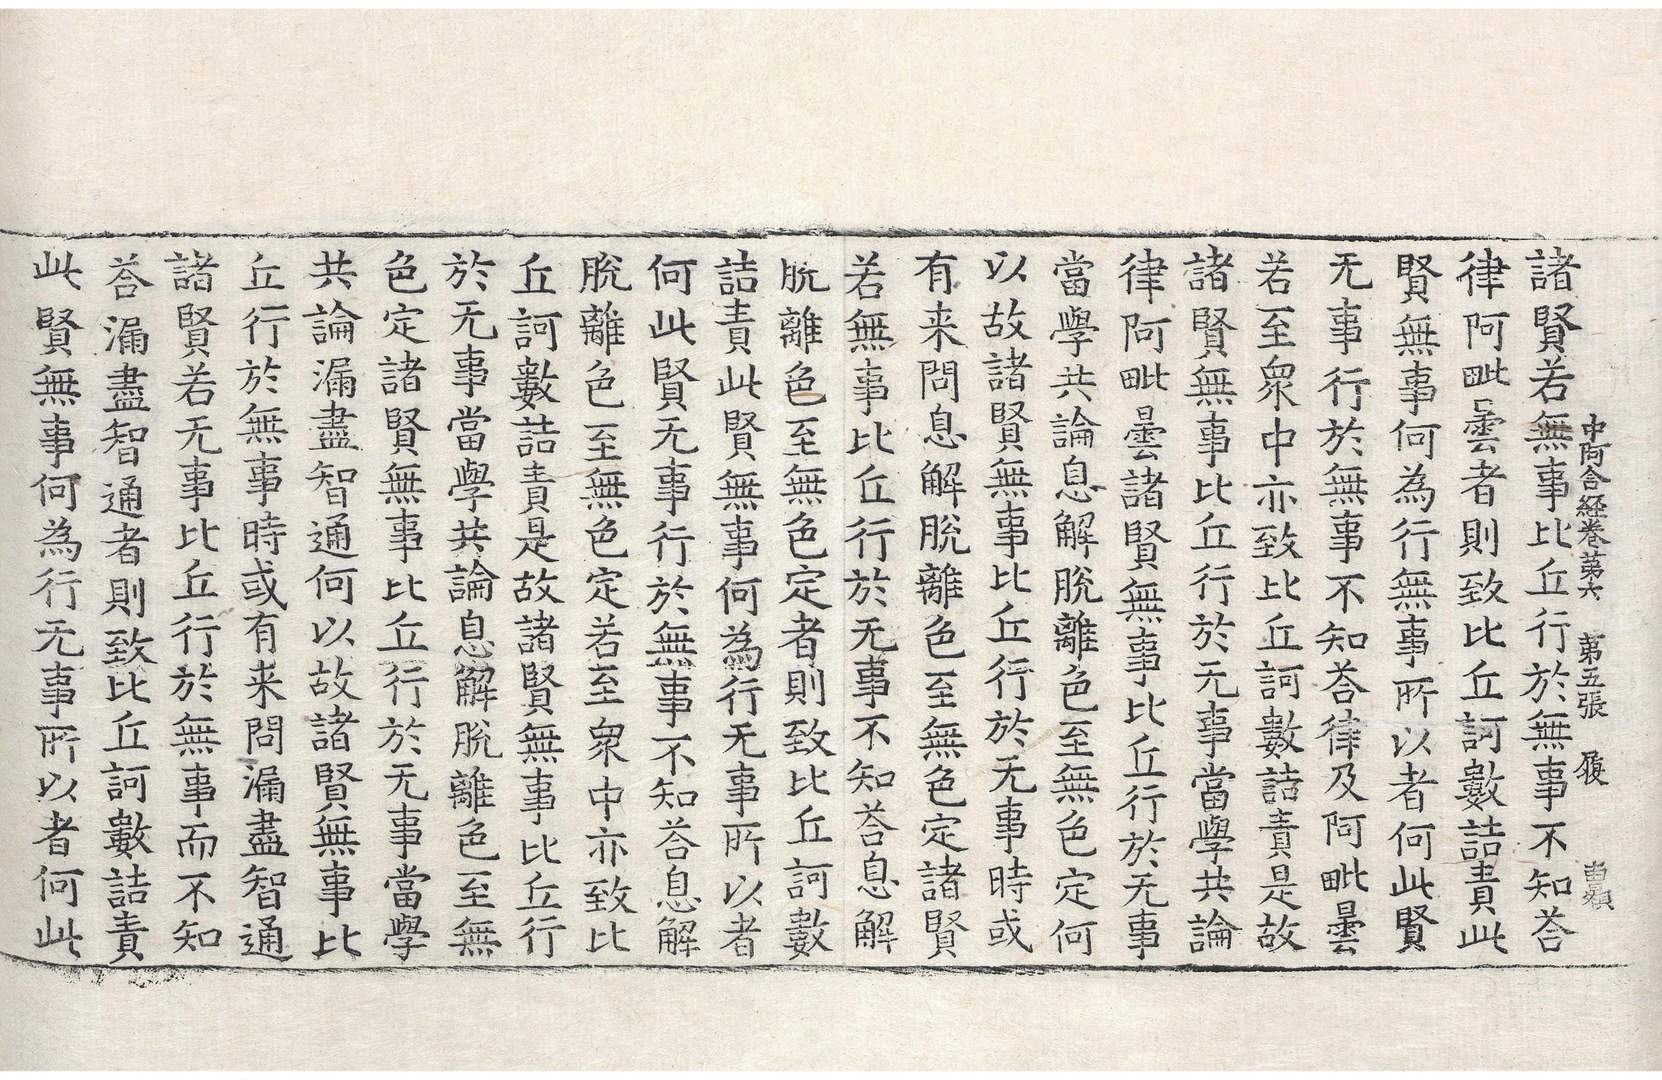 中阿含経巻第六　第五張　履
諸賢若無事比丘行於無事不知荅
律阿毗曇者則致比丘訶數詰責此
賢無事何為行無事所以者何此賢
无事行於無事不知荅律及阿毗曇
若至衆中亦致比丘訶數詰責是故
諸賢無事比丘行於无事當學共論
律阿毗曇諸賢無事比丘行於无事
當學共論息解脫離色至無色定何
以故諸賢無事比丘行於无事時或
有来問息解脫離色至無色定諸賢
若無事比丘行於无事不知荅息解
脫離色至無色定者則致比丘訶數
詰責此賢無事何為行无事所以者
何此賢无事行於無事不知荅息解
脫離色至無色定若至衆中亦致比
丘訶數詰責是故諸賢無事比丘行
於无事當學共論息解脫離色至無
色定諸賢無事比丘行於无事當學
共論漏盡智通何以故諸賢無事比
丘行於無事時或有来問漏盡智通
諸賢若无事比丘行於無事而不知
荅漏盡智通者則致比丘訶數詰責
此賢無事何為行无事所以者何此